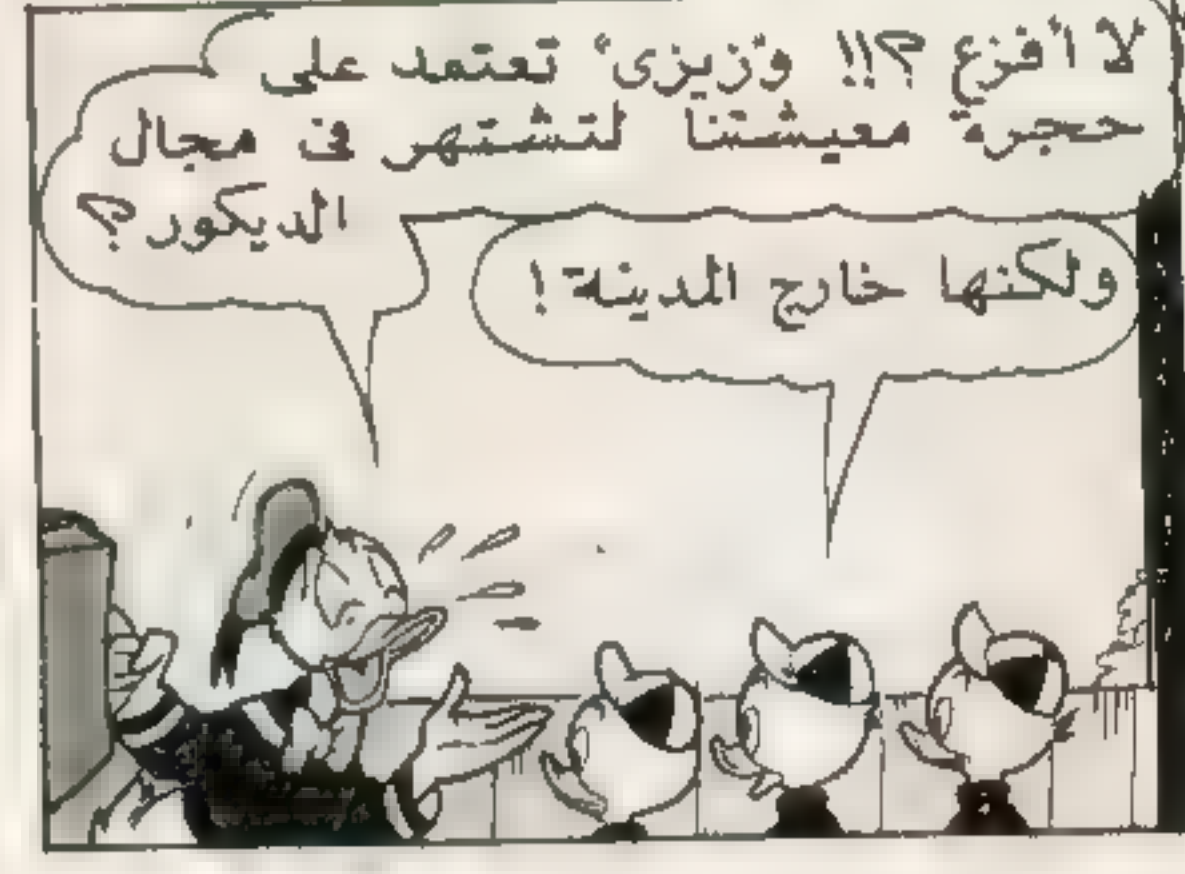 لا أفزع ؟!! و"زيزى" تعتمد على
حجرة معيشتنا لتشتهر فى مجال
الديكور؟
ولكنها خارج المدينة !